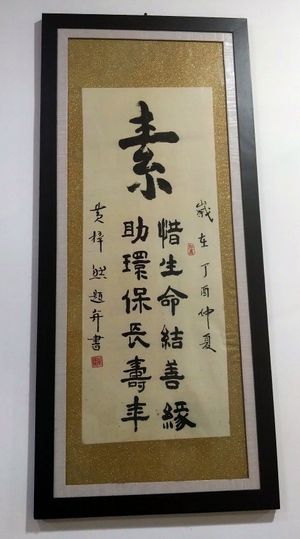 素
歲在丁酉仲夏
惜生命結善緣
助環保長壽年
黃梓然題并書